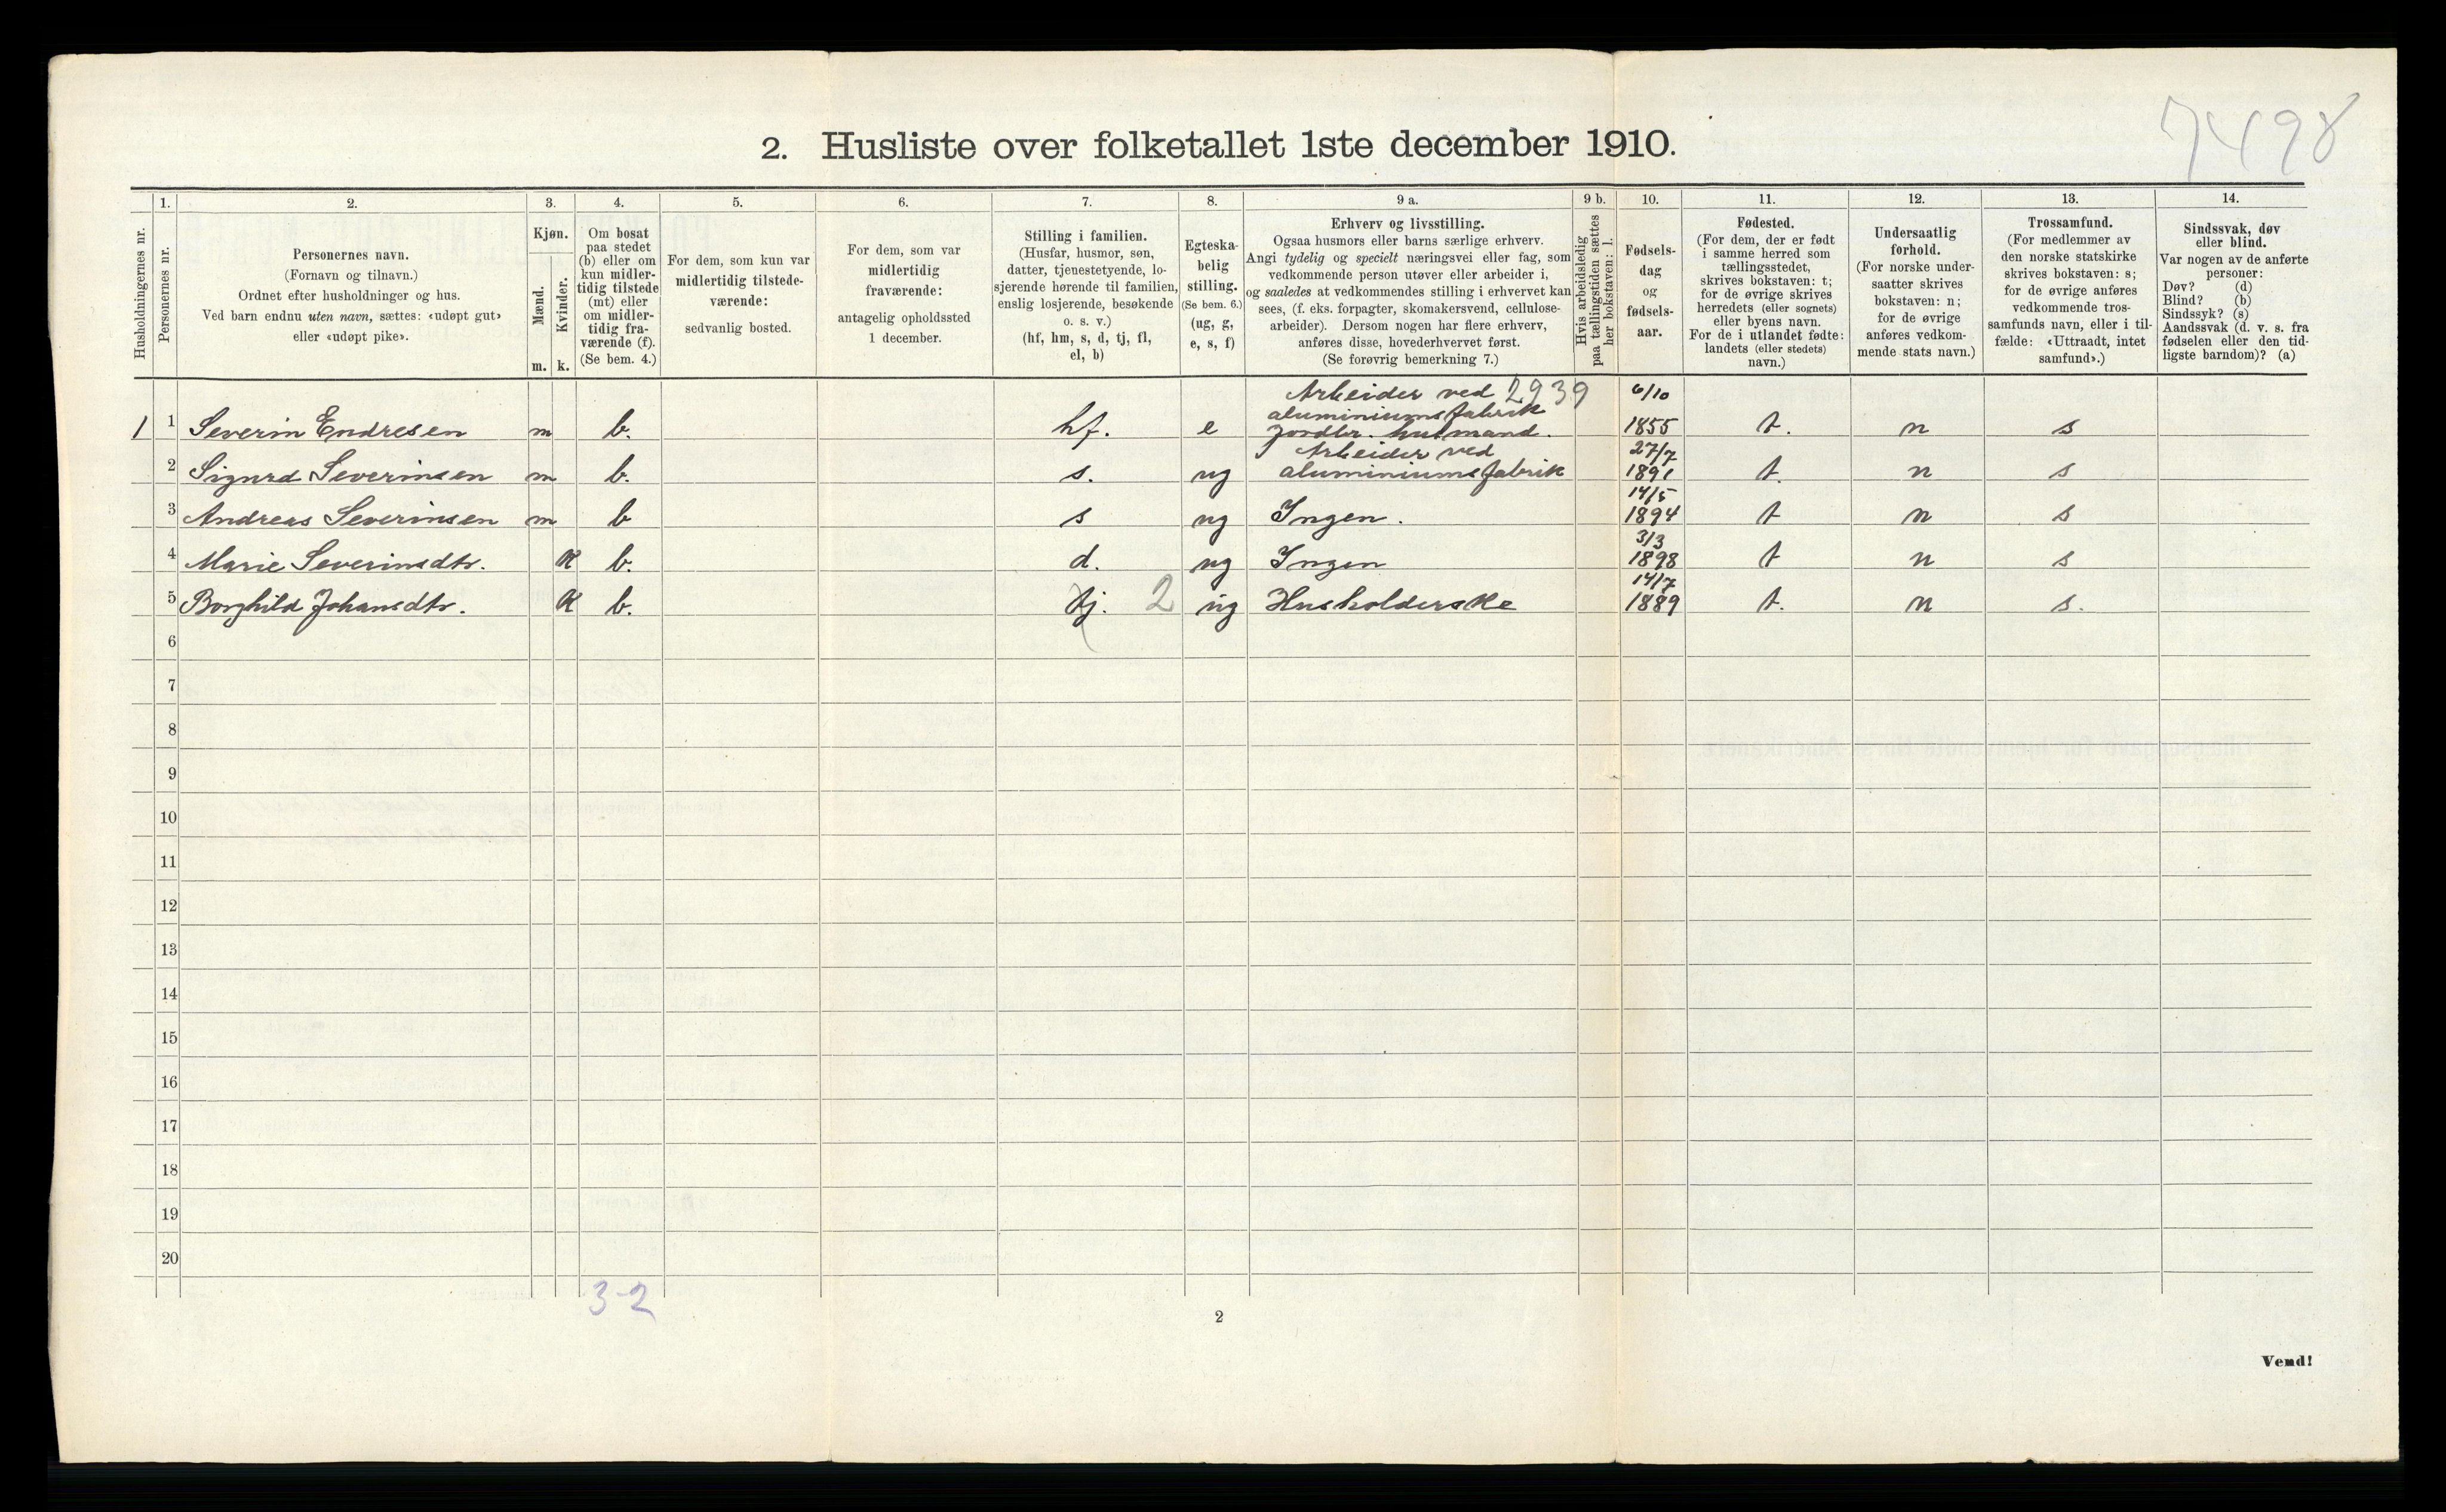 7498
2. Husliste over folketallet 1ste december 1910.
Husholdningernes nr.
1.
Personernes nr.
2.
Personernes navn.
(Fornavn og tilnavn.)
Ordnet efter husholdninger og hus.
Ved barn endnu uten navn, sættes: «udøpt gut»
eller «udøpt pike».
3.
Kjøn.
Mænd.
Kvinder.
m. k.
4.
Om bosat
paa stedet
(b) eller om
kun midler-
tidig tilstede
(mt) eller
om midler-
tidig fra-
værende (f).
(Se bem. 4.)
5.
For dem, som kun var
midlertidig tilstede-
værende:
sedvanlig bosted.
6.
For dem, som var
midlertidig
fraværende:
antagelig opholdssted
1 december.
7.
Stilling i familien.
(Husfar, husmor, søn,
datter, tjenestetyende, lo-
sjerende hørende til familien,
enslig losjerende, besøkende
o. s. v.)
(hf, hm, s, d, tj, fl,
el, b)
8.
Egteska-
belig
stilling.
(Se bem. 6.)
(ug, g,
e, s, f)
9 a.
Erhverv og livsstilling.
Ogsaa husmors eller barns særlige erhverv.
Angi tydelig og specielt næringsvei eller fag, som
vedkommende person utøver eller arbeider i,
og saaledes at vedkommendes stilling i erhvervet kan
sees, (f. eks. forpagter, skomakersvend, cellulose-
arbeider). Dersom nogen har flere erhverv,
anføres disse, hovederhvervet først.
(Se forøvrig bemerkning 7.)
9 b.
Hvis arbeidsledig
paa tællingstiden sættes
her bokstaven: l.
10.
Fødsels-
dag
og
fødsels-
aar.
11.
Fødested.
(For dem, der er født
i samme herred som
tællingsstedet,
skrives bokstaven: t;
for de øvrige skrives
herredets (eller sognets)
eller byens navn.
For de i utlandet fødte:
landets (eller stedets)
navn.)
12.
Undersaatlig
forhold.
(For norske under-
saatter skrives
bokstaven: n;
for de øvrige
anføres vedkom-
mende stats navn.)
13.
Trossamfund.
(For medlemmer av
den norske statskirke
skrives bokstaven: s;
for de øvrige anføres
vedkommende tros-
samfunds navn, eller i til-
fælde: «Uttraadt, intet
samfund».)
14.
Sindssvak, døv
eller blind.
Var nogen av de anførte
personer:
Døv? (d)
Blind? (b)
Sindssyk? (s)
Aandssvak (d. v. s. fra
fødselen eller den tid-
ligste barndom)? (a)
Arbeider ved 2939 6/10
aluminiumsfabrik
1 1 Severin Endresen m b. hf. e Jordbr. husmand. 1855 t. n s
Arbeider ved 27/7
2 Sigurd Severinsen m b. s. ug aluminiumsfabrik 1891 t. n s
14/5
3 Andreas Severinsen m b s ug Ingen. 1894 t n s
3/3
4 Marie Severinsdtr. K b. d. ug Ingen 1898 t n s
14/7
5 Borghild Johansdtr. K b. tj. 2 ug Husholderske 1889 t. n s.
6
7
8
9
10
11
12
13
14
15
16
17
18
19
20
3-2
2
Vend!